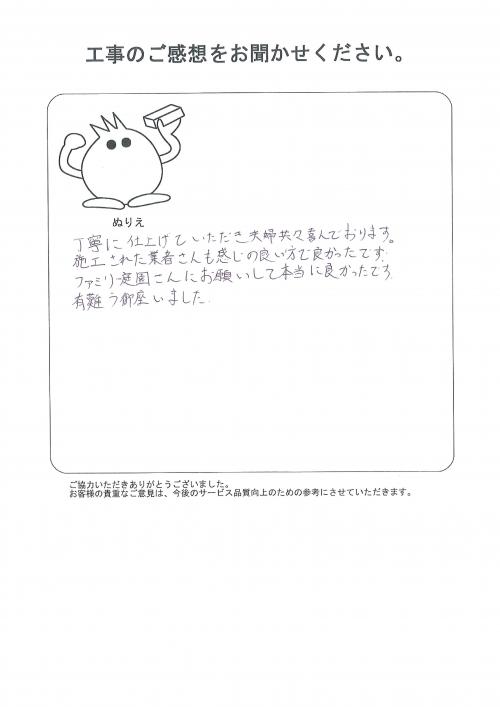 工事のご感想をお聞かせください。
ぬりえ
丁寧に仕上げていただき夫婦共々喜んでおります。
施工された業者さんも感じの良い方で良かったです。
ファミリー庭園さんにお願いして本当に良かったです。
有難う御座いました。
ご協力いただきありがとうございました。
お客様の貴重なご意見は、今後のサービス品質向上のための参考にさせていただきます。